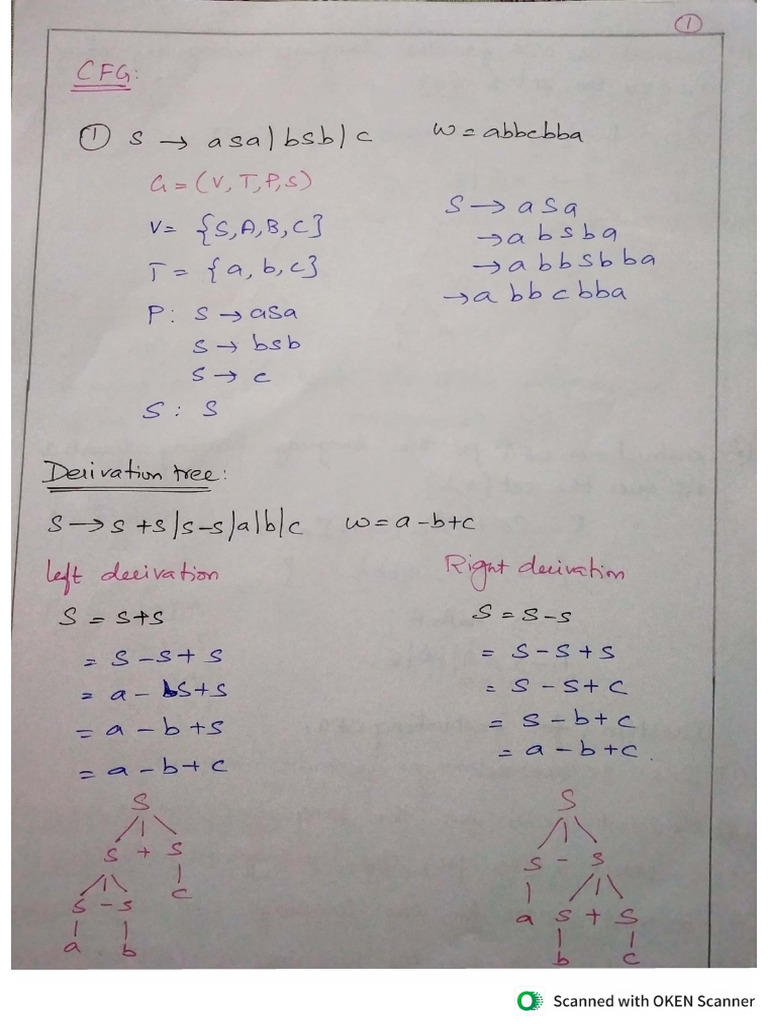 1
CFG:
① S → asa | bsb | c    w = abbcbba
G = (V, T, P, S)
V = {S, A, B, C}
T = {a, b, c}
P: S → asa
S → bsb
S → c
S : S
S → a S a
→ a b s b a
→ a b b s b b a
→ a b b c b b a
Derivation tree:
S → S + S | S - S | a | b | c    w = a - b + c
left derivation
S = S + S
= S - S + S
= a - S + S
= a - b + S
= a - b + c
Right derivation
S = S - S
= S - S + S
= S - S + c
= S - b + c
= a - b + c.
S
S + S
S - S c
a b
S
S - S
a S + S
b c
Scanned with OKEN Scanner